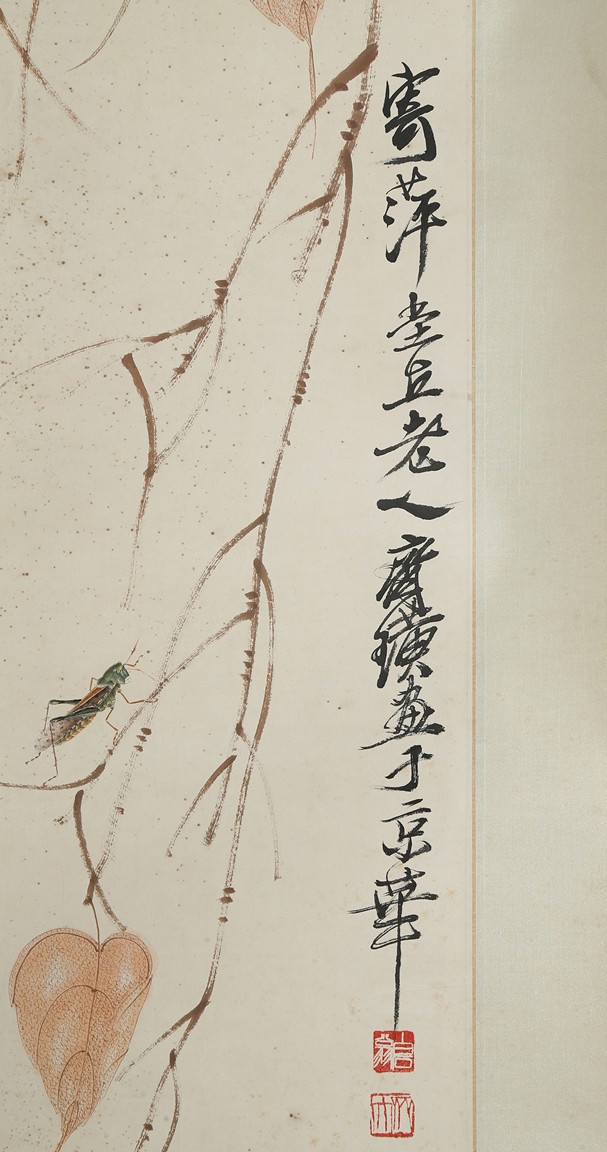 寄萍堂上老人齊璜畫于京華
白石翁